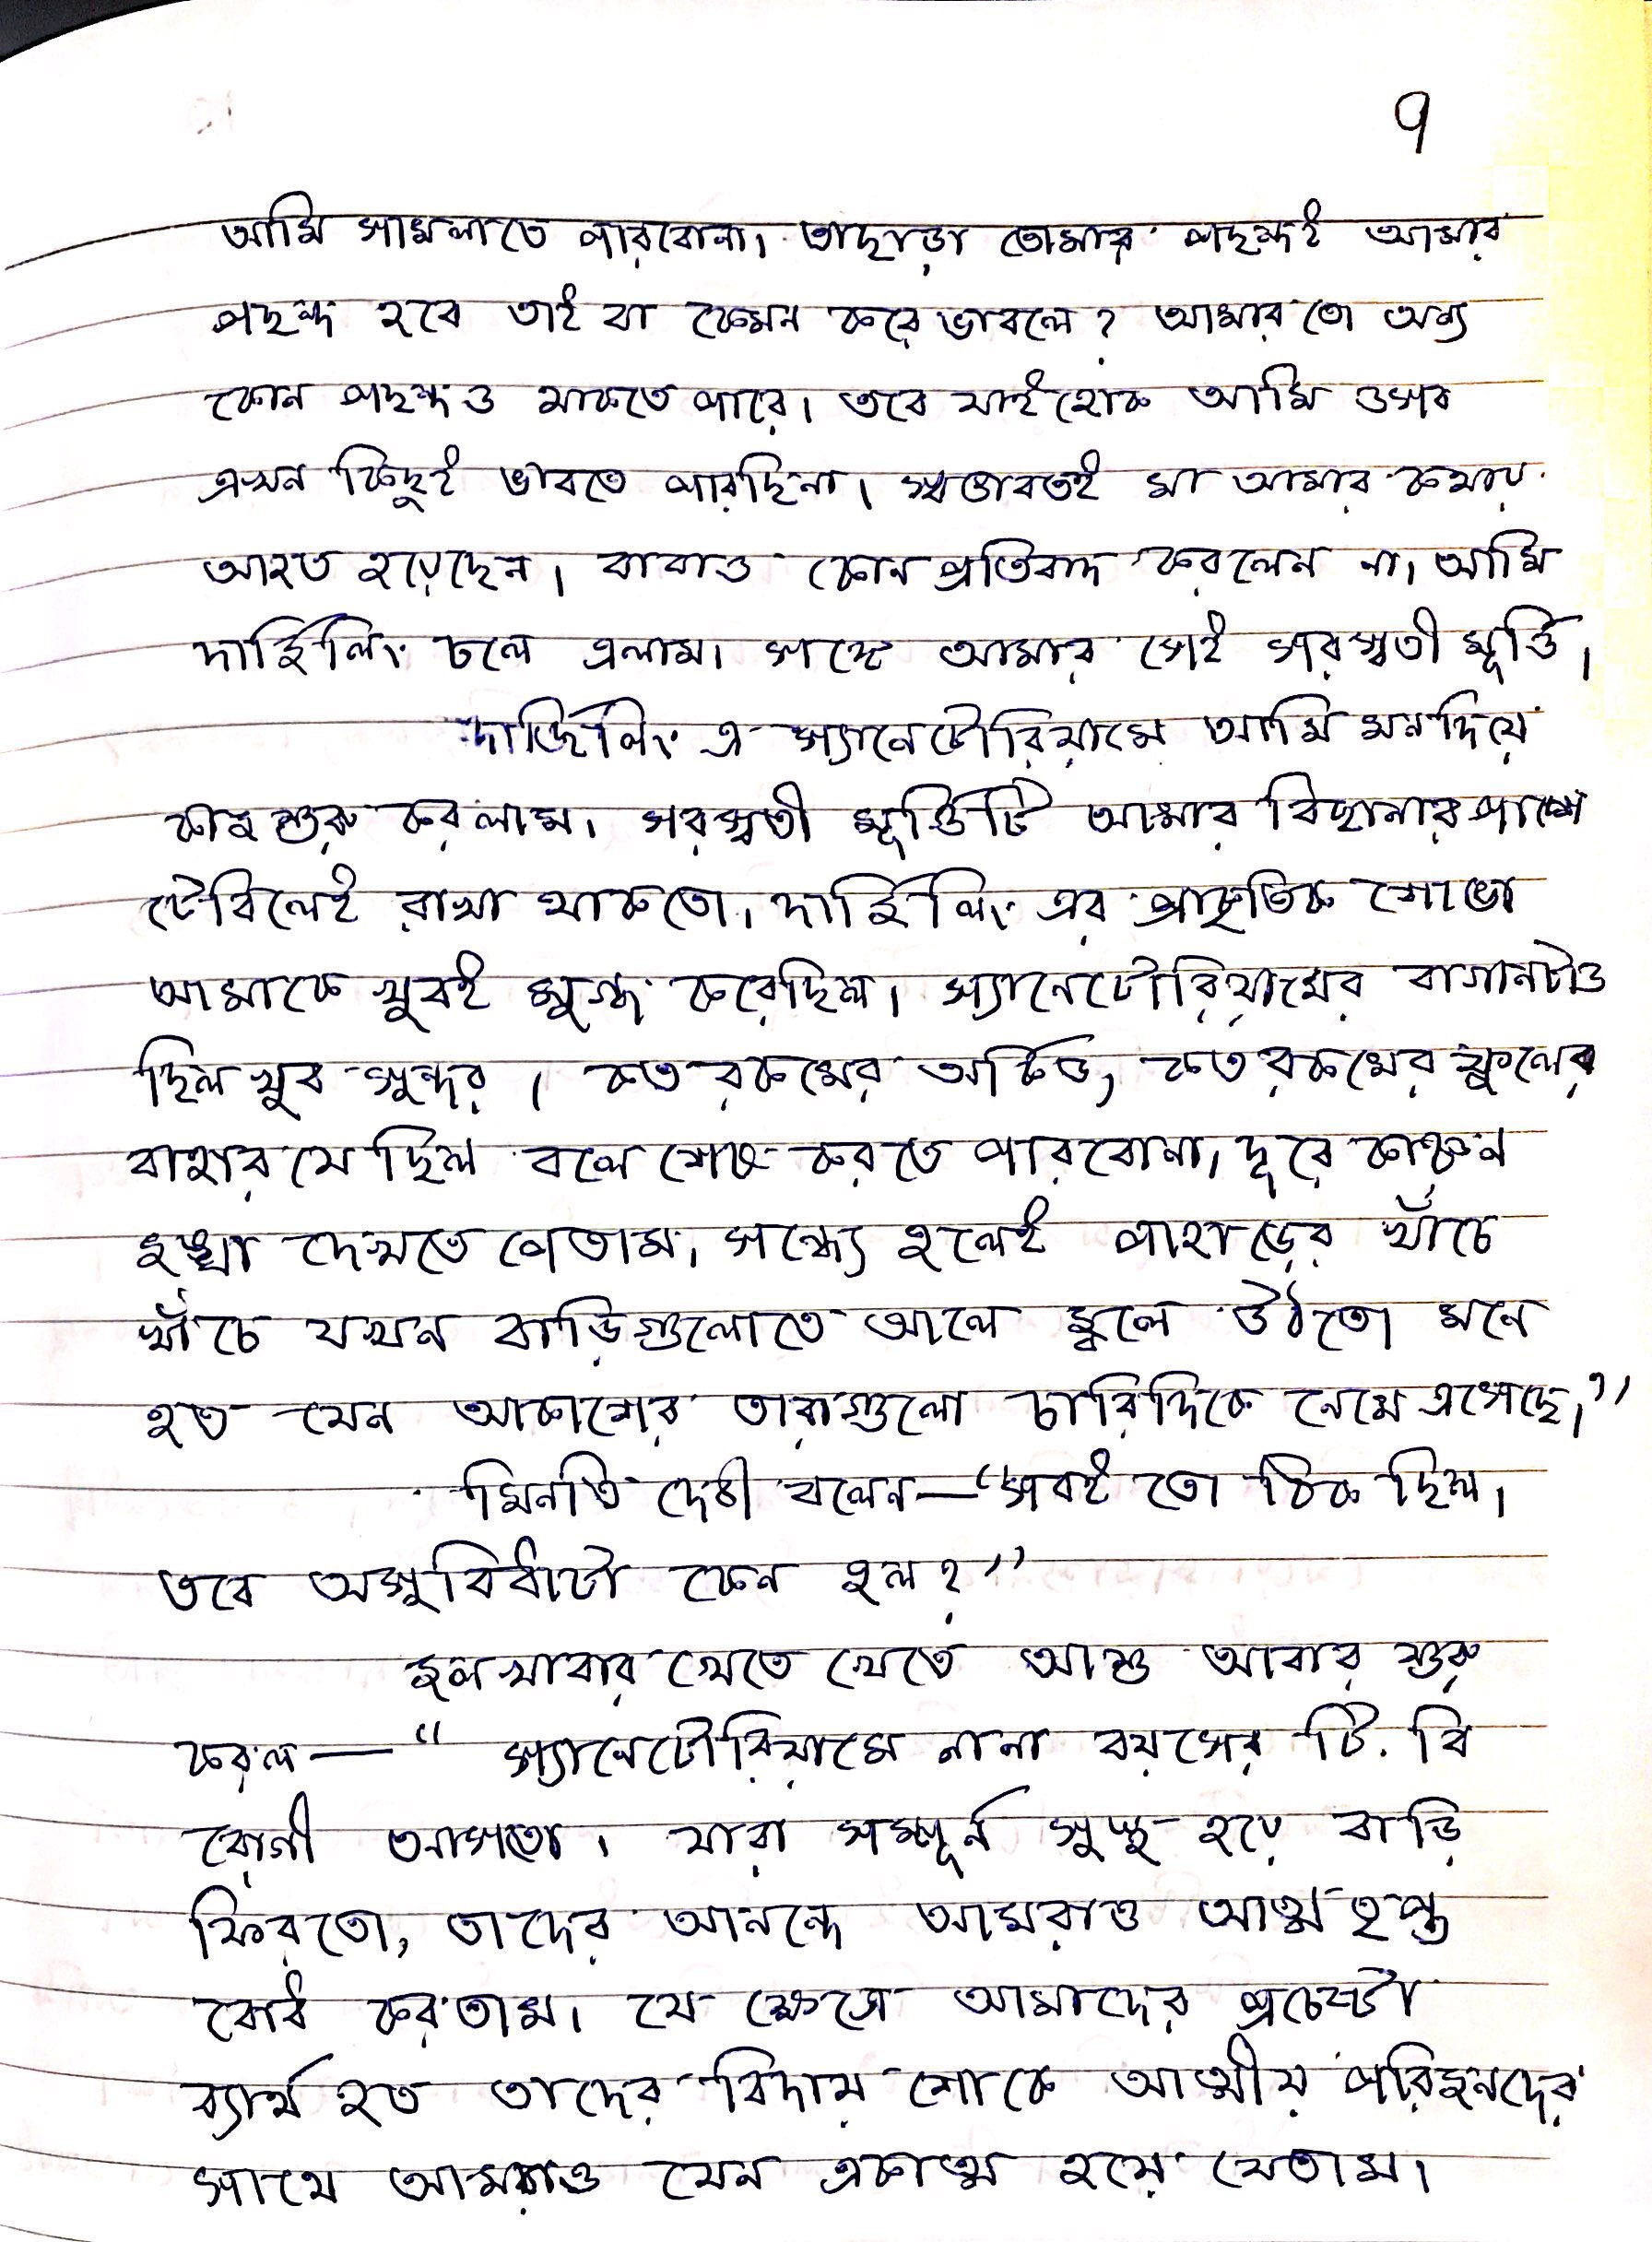 ৭
আমি সামলাতে পারবোনা। তাছাড়া তোমার পছন্দই আমার
পছন্দ হবে তাই বা কেমন করে ভাবলে? আমার তো অন্য
কোন পছন্দও থাকতে পারে। তবে যাইহোক আমি ওসব
এখন কিছুই ভাবতে পারছিনা। স্বভাবতই মা আমার কথায়
আহত হয়েছেন। বাবাও কোন প্রতিবাদ করলেন না। আমি
দার্জিলিং চলে এলাম। সঙ্গে আমার সেই সরস্বতী মূর্ত্তি।
দার্জিলিং এ স্যানেটোরিয়ামে আমি মনদিয়ে
কাজ শুরু করলাম। সরস্বতী মূর্ত্তিটি আমার বিছানার পাশে
টেবিলেই রাখা থাকতো। দার্জিলিং এর প্রাকৃতিক শোভা
আমাকে খুবই মুগ্ধ করেছিল। স্যানেটোরিয়ামের বাগানটাও
ছিল খুব সুন্দর। কত রকমের অর্কিড, কত রকমের ফুলের
বাহার যে ছিল বলে শেষ করতে পারবোনা। দূরে কাঞ্চন
জঙ্ঘা দেখতে পেতাম। সন্ধ্যে হলেই পাহাড়ের খাঁচে
খাঁচে যখন বাড়িগুলোতে আলো জ্বলে উঠতো মনে
হত যেন আকাশের তারাগুলো চারিদিকে নেমে এসেছে।"
মিনতি দেবী বলেন—"সবই তো ঠিক ছিল।
তবে অসুবিধাটা কেন হল?"
জলখাবার খেতে খেতে আশু আবার শুরু
করল—" স্যানেটোরিয়ামে নানা বয়সের টি. বি
রোগী আসতো। যারা সম্পূর্ন সুস্থ হয়ে বাড়ি
ফিরতো, তাদের আনন্দে আমরাও আত্মতৃপ্ত
বোধ করতাম। যে ক্ষেত্রে আমাদের প্রচেষ্টা
ব্যার্থ হত তাদের বিদায় শোকে আত্মীয় পরিজনদের
সাথে আমরাও যেন একাত্ম হয়ে যেতাম।